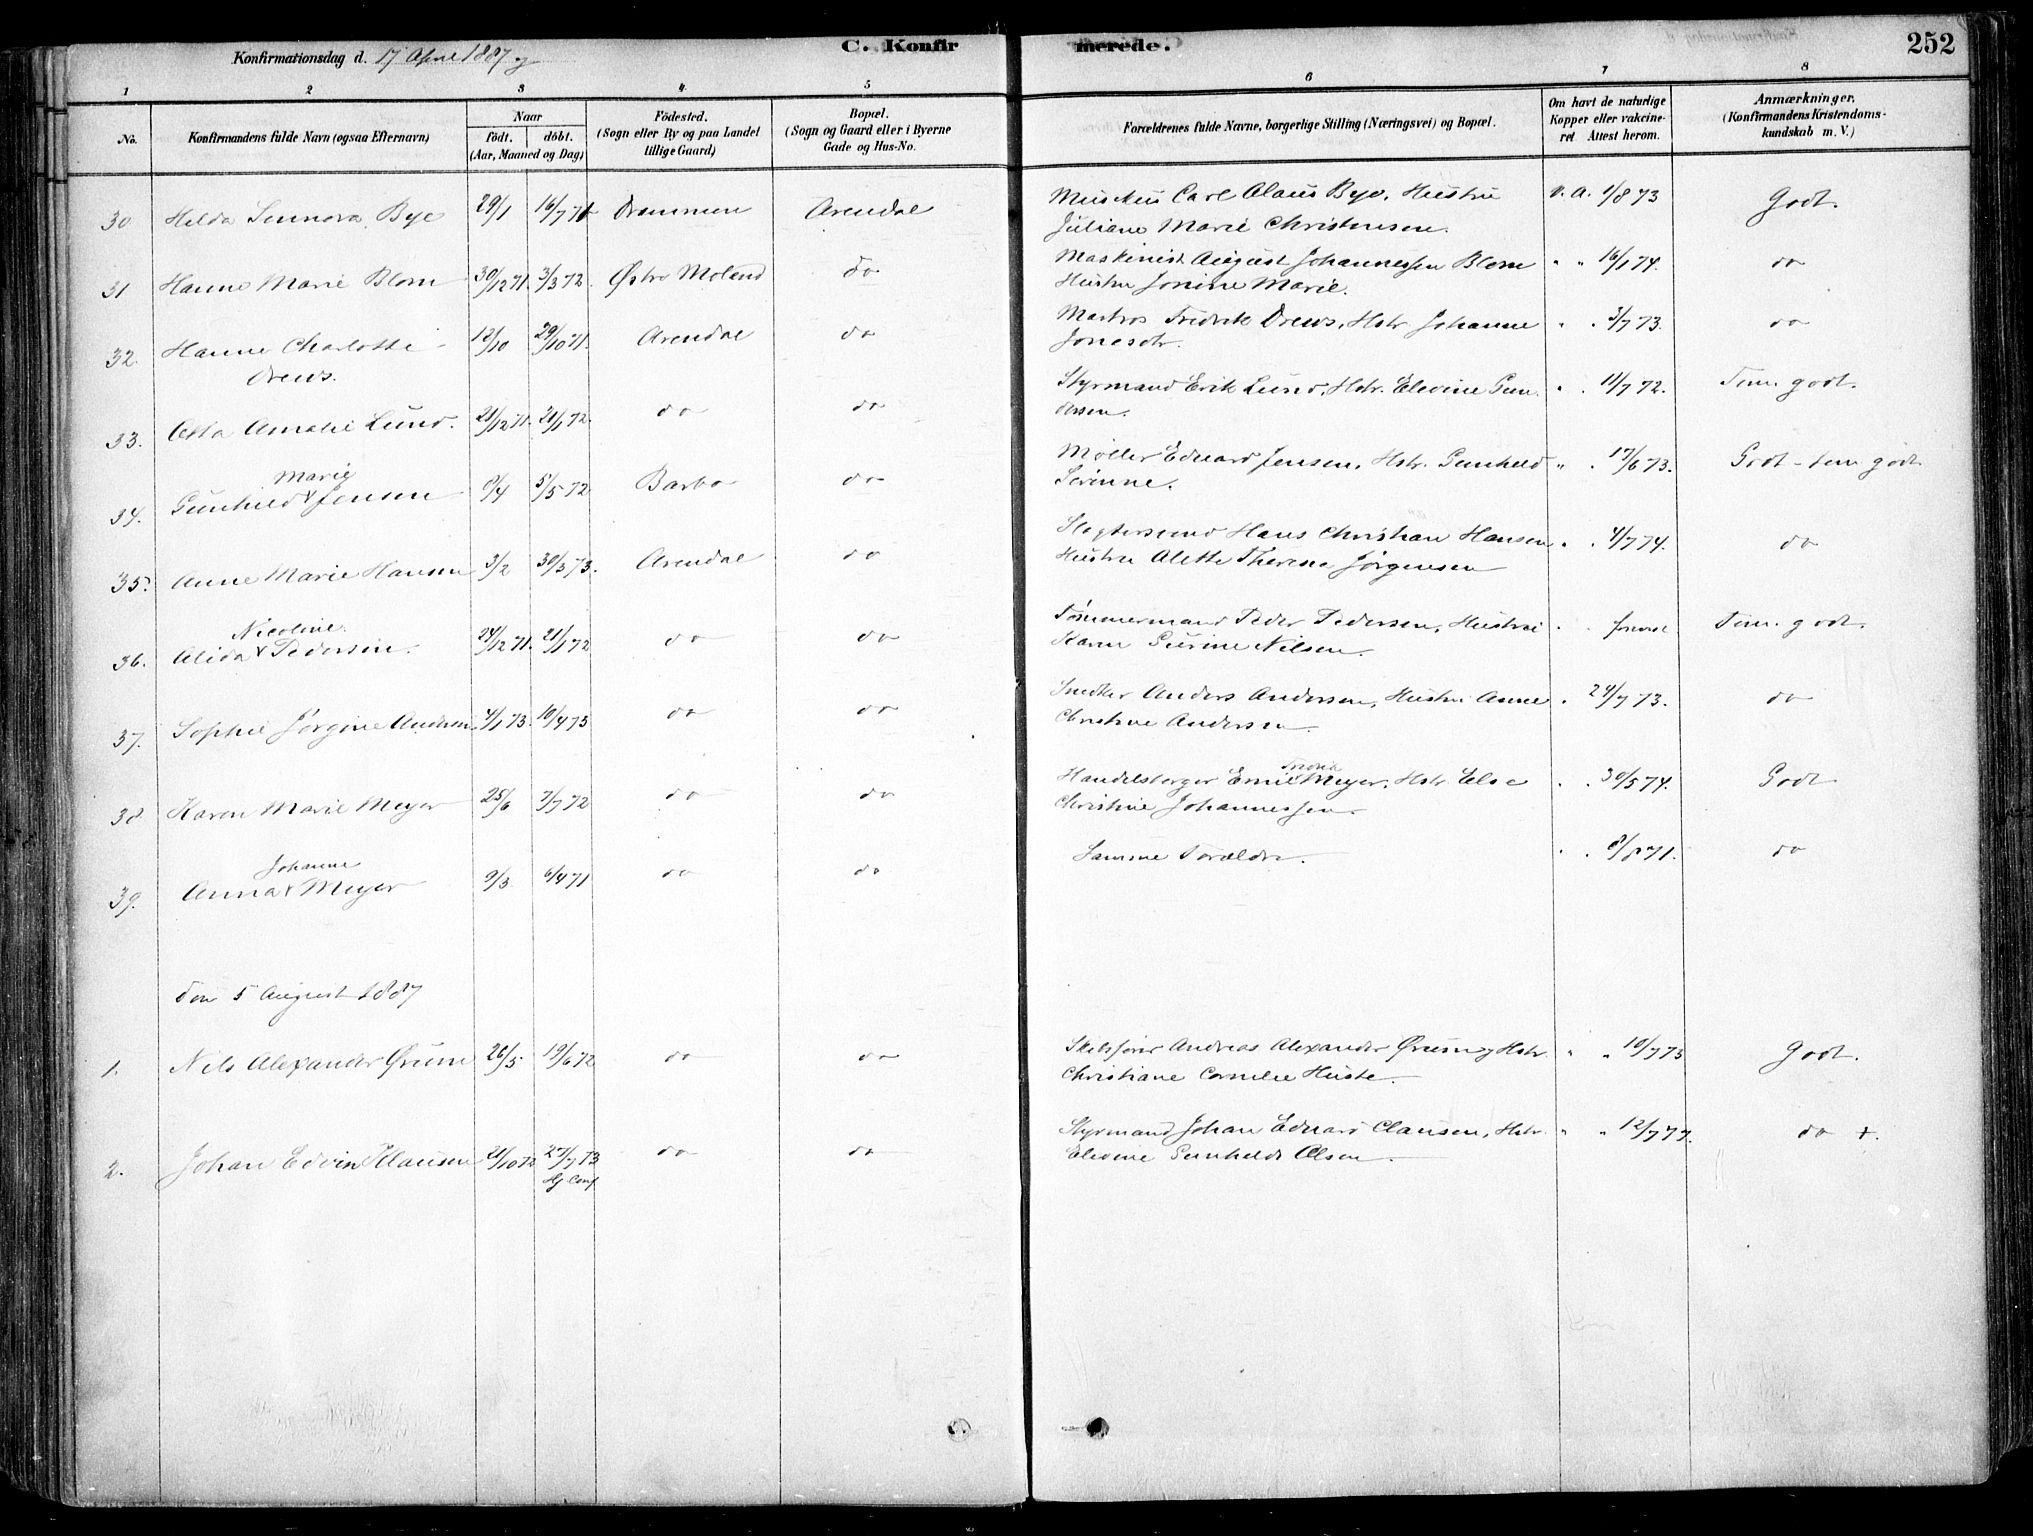 Konfirmationsdag d. 17 April 1887
C. Konfir merede. 252
1 2 3 4 5 6 7 8
No. Konfirmandens fulde Navn (ogsaa Efternavn) Naar født. døbt. (Aar, Maaned og Dag) Fødested. (Sogn eller By og paa Landet tillige Gaard) Bopæl. (Sogn og Gaard eller i Byerne Gade og Hus-No. Forældrenes fulde Navne, borgerlige Stilling (Næringsvei) og Bopæl. Om havt de naturlige Kopper eller vakcineret Attest herom. Anmærkninger. (Konfirmandens Kristendomskundskab m. V.)
30 Hilda Bye 29/1 16/7 71 Drammen Arendal Carl Olaus Bye, Hustru v. a. 1/8 73 Godt.
Juliane Marie Christensen.
31 Hanne Marie Blom 30/12 71. 3/3 72. Østre Moland do Maskinist August Johannessen Blom " " 16/1 74. do
Hustru Jonine Marie.
32. Hanne Charlotte 12/10 29/10 71. Arendal do Matros Fredrik Drews, Hstr. Johanne " " 3/7 73. do
Drews. Jonesdtr.
33. Otta Amalie Lund. 21/12 71. 21/1 72. do do Styrmand Erik Lund, Hstr. Elevine Gun- " " 11/7 72. Tem. godt.
dersen.
Marie
34. Gunhild Jensen 9/4 5/5 72 Barbo do Møller Eduard Jensen, Hstr. Gunhild " " 17/6 73. Godt - tem godt
Serinne.
35. Anne Marie Hansen 3/2 30/3 73. Arendal do Hans Christian Hansen " " 4/7 74. do
Hustru Alette Therese Jørgensen
Nicoline.
36. Alida Pedersen. 24/12 71. 21/1 72 do do Tømmermand Peder Pedersen, Hustru " " Tem. godt.
Karen Nilsen.
37. Sophie Jørgine Andersen 4/1 73. 10/4 73 do do Snedker Anders Andersen, Hustru Anne " 24/7 73. do
Christine Andersen
38. Karen Marie Meyer 25/6 7/7 72 do do Handelsborger Emil Meyer, Hstr. Else " " 30/5 74. Godt
Christine Johannessen.
Johanne
39. Anna Meyer 9/3 6/4 71 do do Samme Forældre. " " 8/8 71. do
den 5 August 1887
1. Nils Alexander Ørum 26/5 19/6 72 do do Skibsfører Andreas Alexander Ørum og Hstr. " " 10/7 73 Godt.
Christiane Cornelie Huste.
2. Johan Edvin Klausen 21/10 72 27/7 73 do do Styrmand Johan Eduard Clausen, Hstr. " " 12/7 77. do +.
Elevine Gunhilde Olsen.